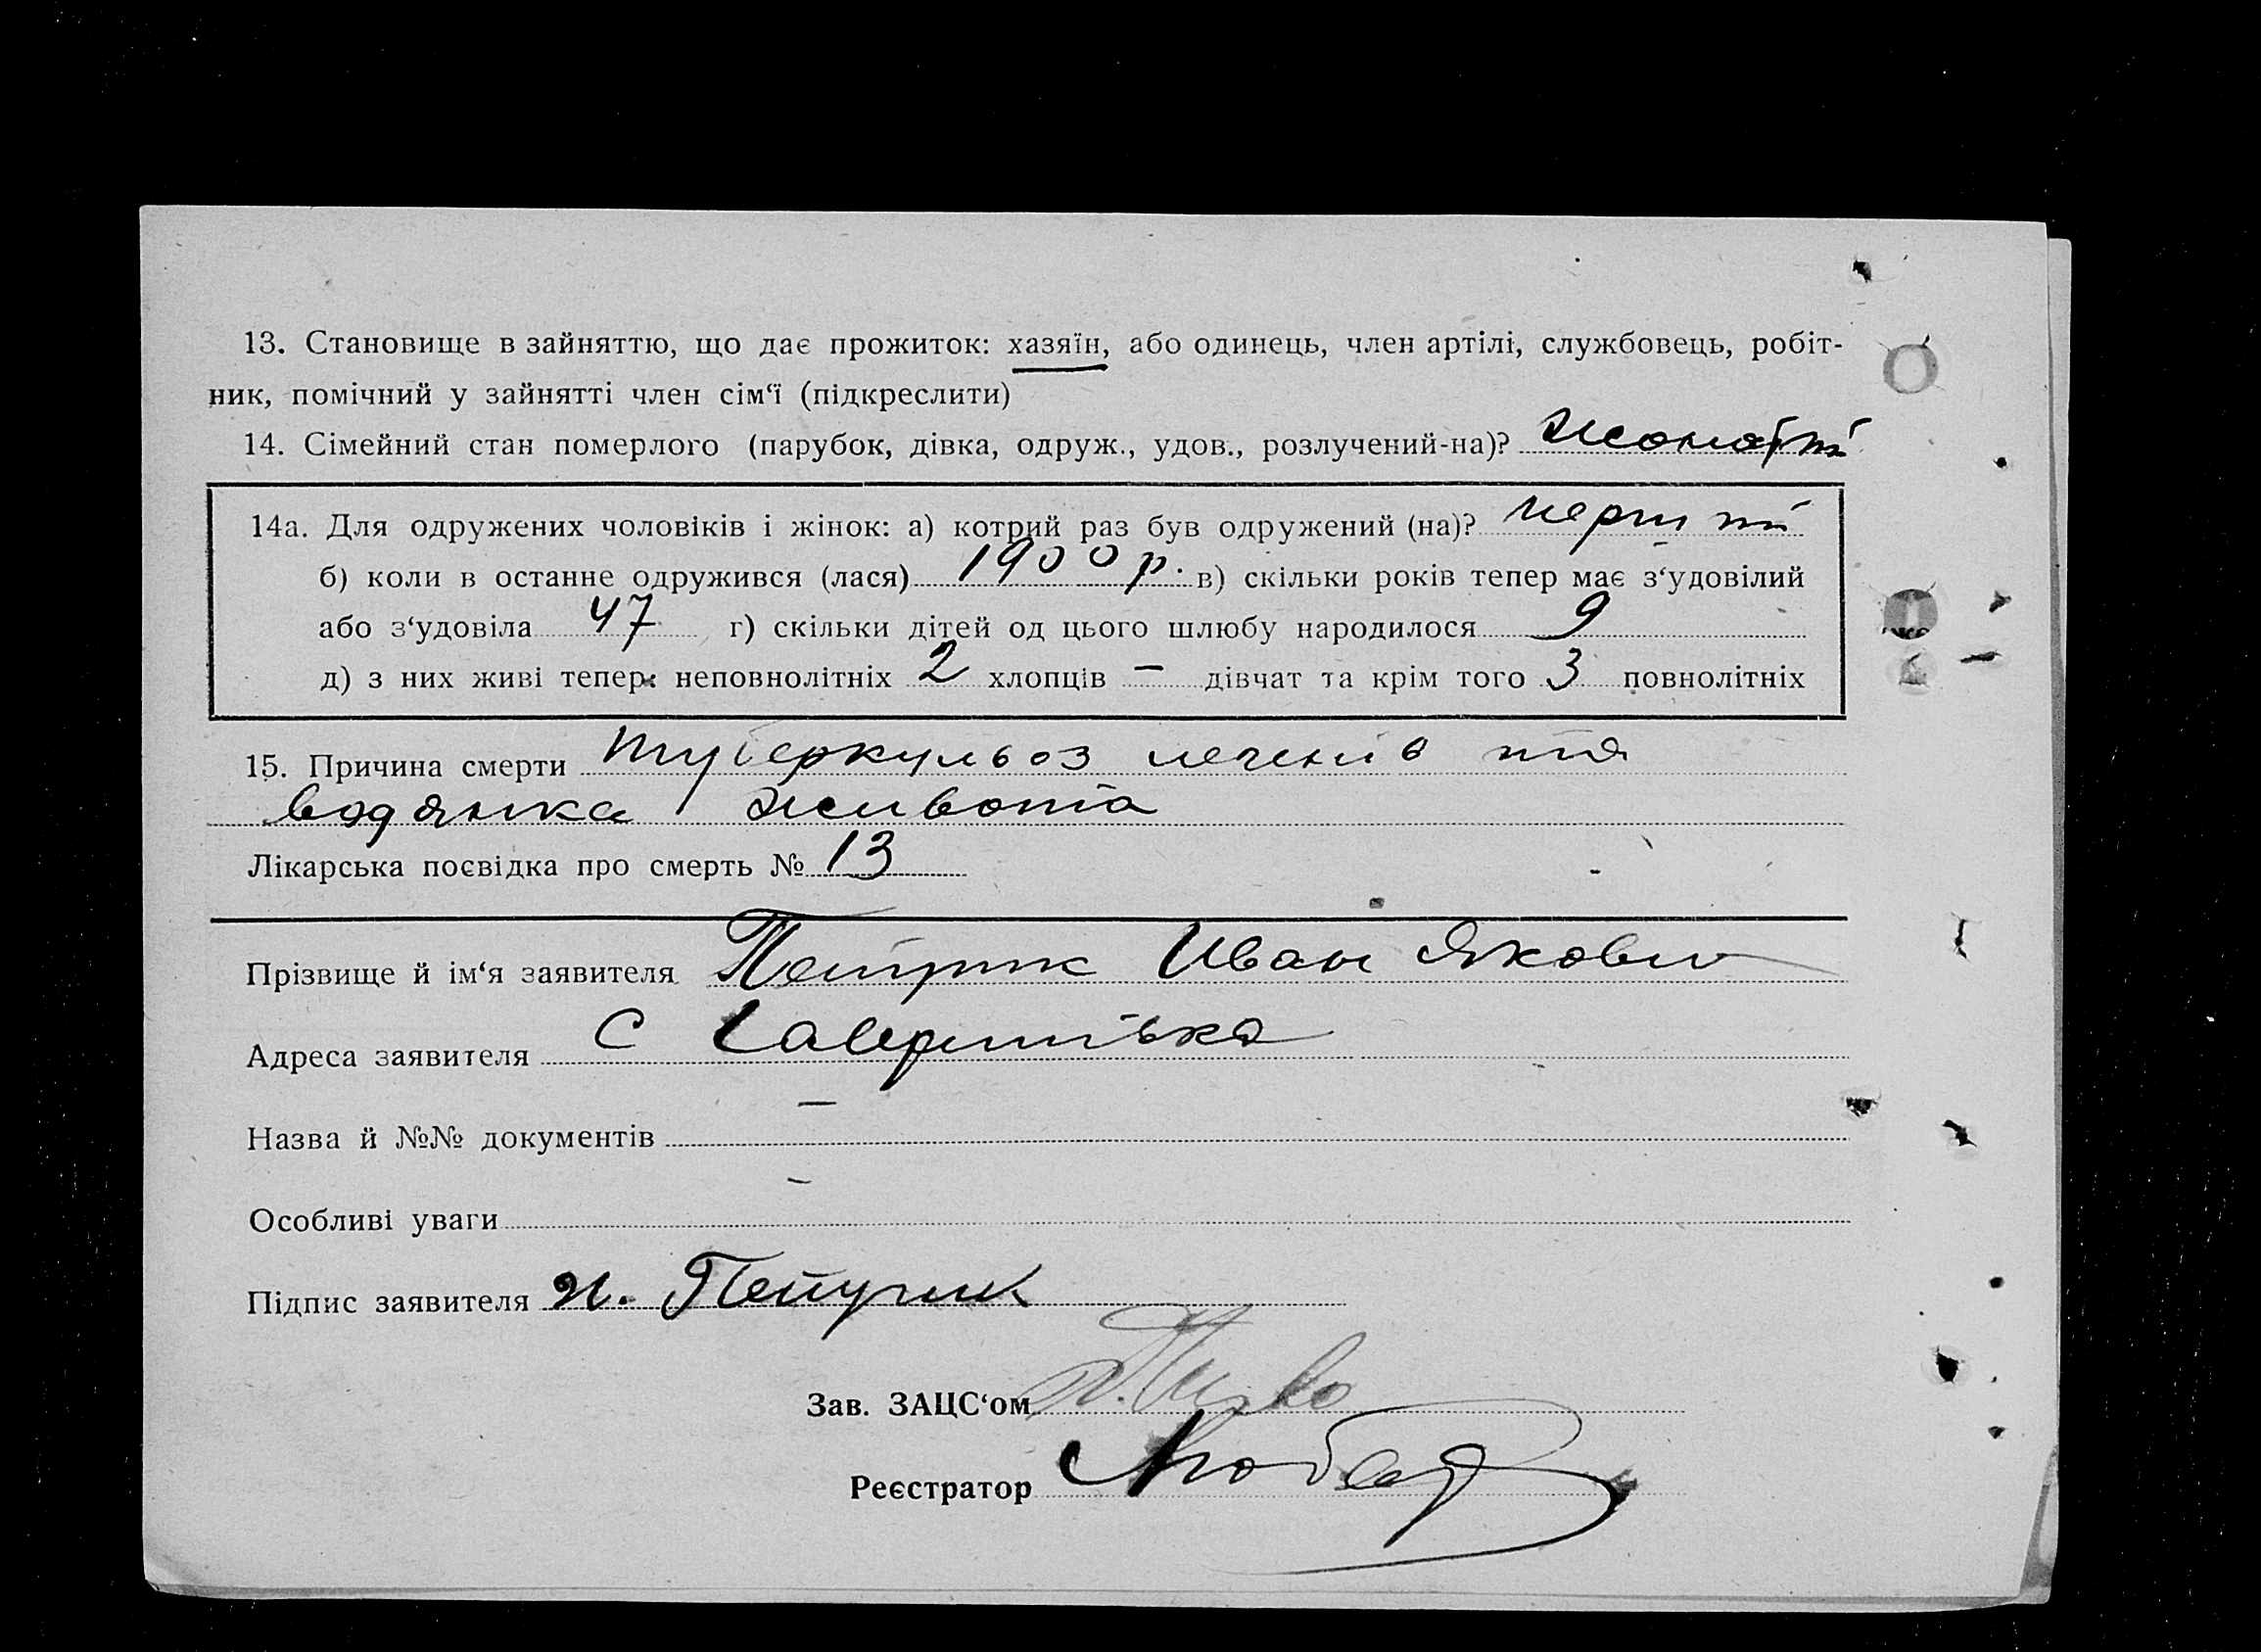 13. Становище в зайняттю, що дає прожиток: хазяїн, або одинець, член артілі, службовець, робіт-
ник, помічний у зайнятті член сім‘ї (підкреслити)
14. Сімейний стан померлого (парубок, дівка, одруж., удов., розлучений-на)? жонатий
14а. Для одружених чоловіків і жінок: а) котрий раз був одружений (на)? перший
б) коли в останнє одружився (лася) 1900 р. в) скільки років тепер має з‘удовілий
або з‘удовіла 47 г) скільки дітей од цього шлюбу народилося 9
д) з них живі тепер: неповнолітніх 2 хлопців — дівчат та крім того 3 повнолітніх
15. Причина смерти туберкульоз легенів та
водянка живота
Лікарська посвідка про смерть № 13
Прізвище й ім‘я заявителя Петрик Иван Якович
Адреса заявителя С Гавришівка
Назва й №№ документів —
Особливі уваги —
Підпис заявителя И. Петрик
Зав. ЗАЦС‘ом
Реєстратор